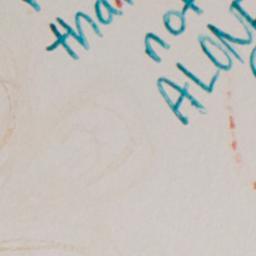 than
not
ALON